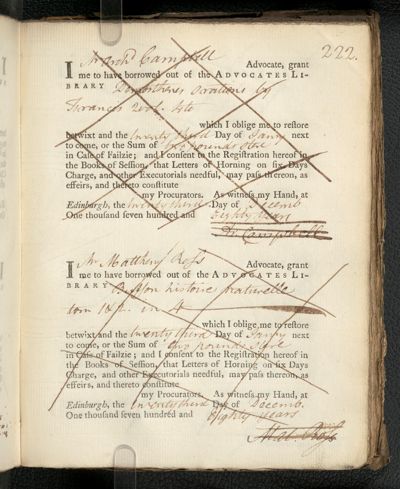 222.
I Mr Archd Campbell Advocate, grant
me to have borrowed out of the ADVOCATES LI-
BRARY Demosthenes orations by
Francis 2 vol. 4to
which I oblige me to reſtore
betwixt and the twenty third Day of Janry next
to come, or the Sum of two pounds
in Caſe of Failzie; and I conſent to the Regiſtration hereof in
the Books of Seſſion, that Letters of Horning on ſix Days
Charge, and other Executorials needful, may paſs thereon, as
effeirs, and thereto conſtitute
my Procurators. As witneſs my Hand, at
Edinburgh, the twenty third Day of Decemb
One thouſand ſeven hundred and Eighty years
Campbell
I Mr Matthew Roſs Advocate, grant
me to have borrowed out of the ADVOCATES LI-
BRARY Buffon histoire naturelle
tom in 4
which I oblige me to reſtore
betwixt and the twenty third Day of Janry next
to come, or the Sum of two pounds
in Caſe of Failzie; and I conſent to the Regiſtration hereof in
the Books of Seſſion, that Letters of Horning on ſix Days
Charge, and other Executorials needful, may paſs thereon, as
effeirs, and thereto conſtitute
my Procurators. As witneſs my Hand, at
Edinburgh, the twenty third Day of Decemb
One thouſand ſeven hundred and Eighty years
Mat. Roſs